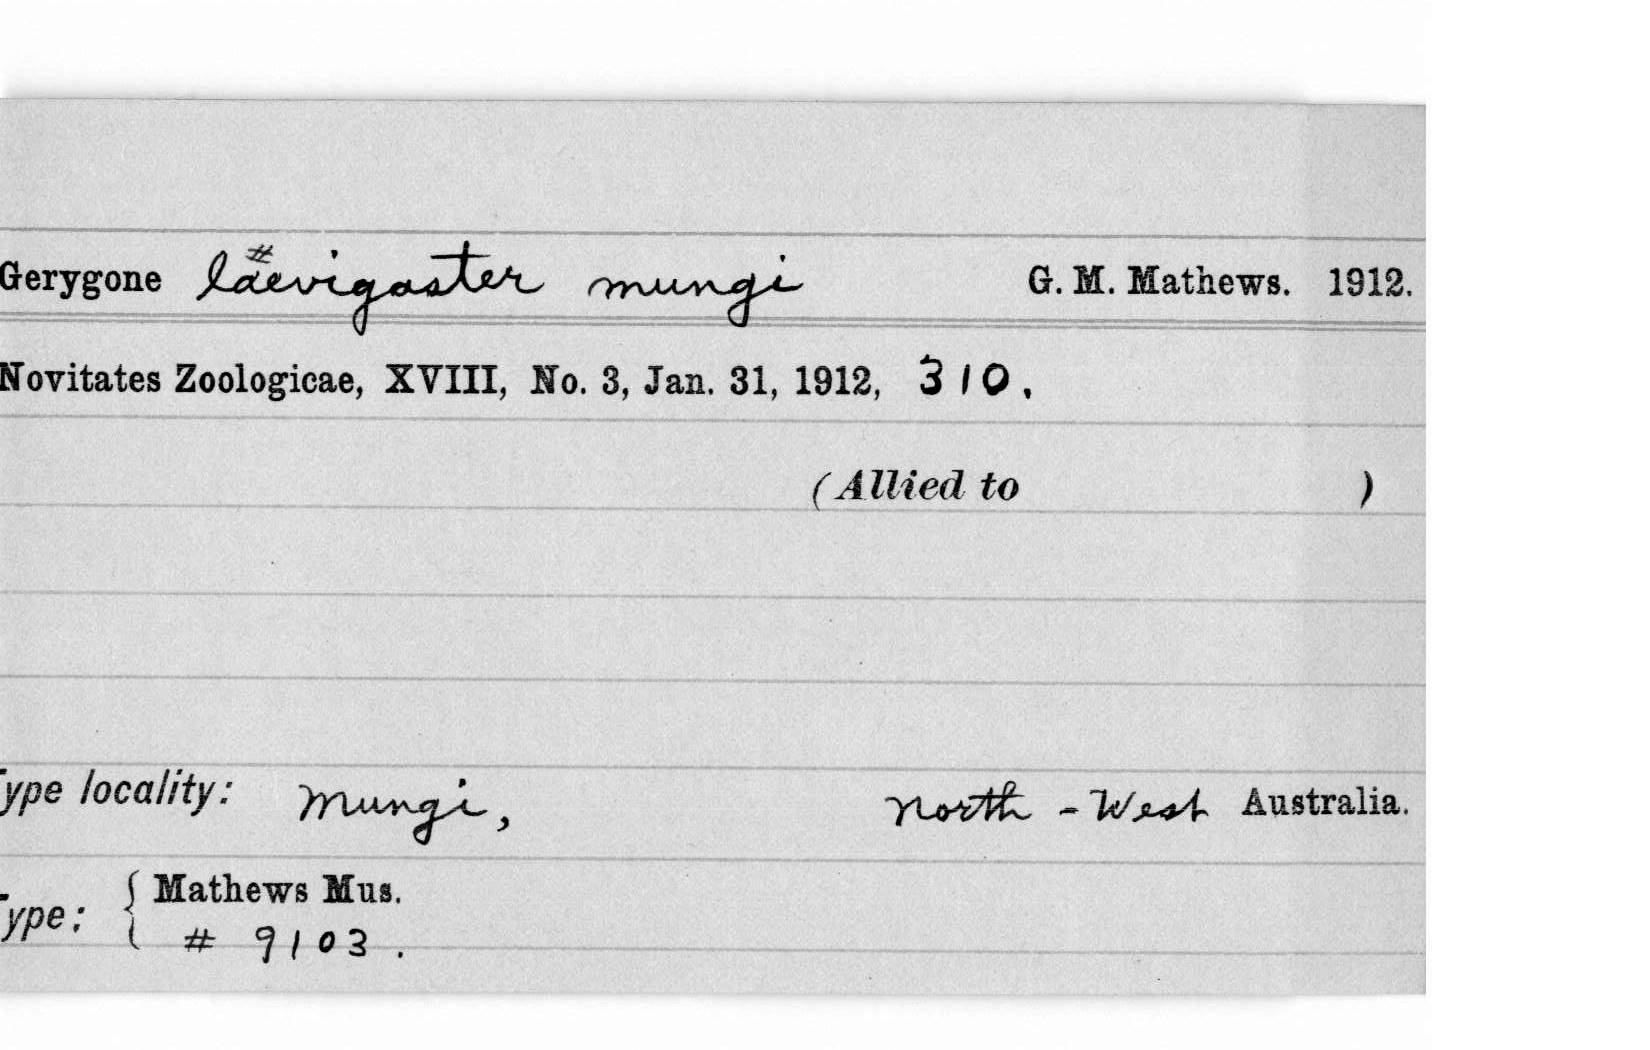 Gerygone laevigaster mungi G. M. Mathews. 1912.
#
Novitates Zoologicae, XVIII, No. 3, Jan. 31, 1912, 310.
(Allied to )
Type locality: Mungi, North-West Australia.
Type: { Mathews Mus.
# 9103.